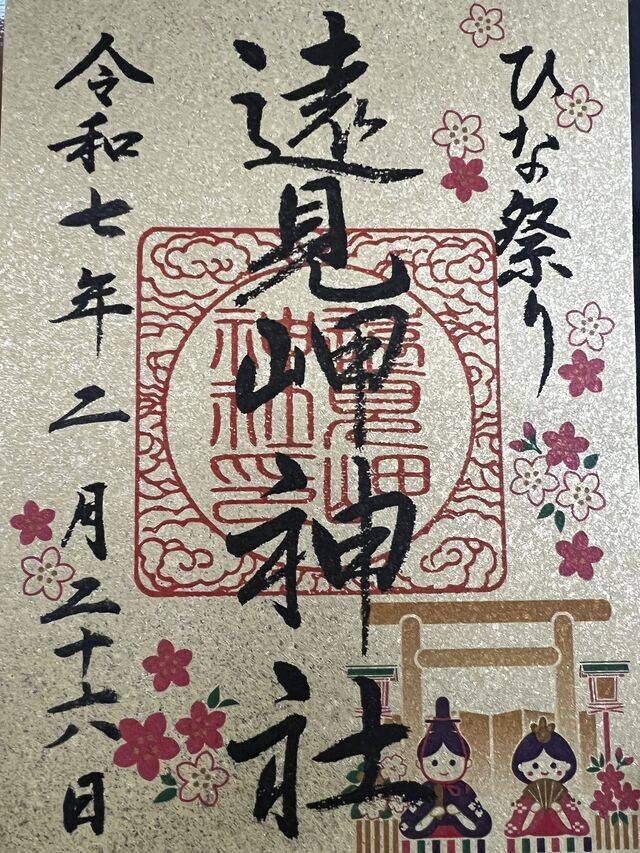 ひな祭り
遠見岬神社
遠見岬
神社印
令和七年二月二十六日